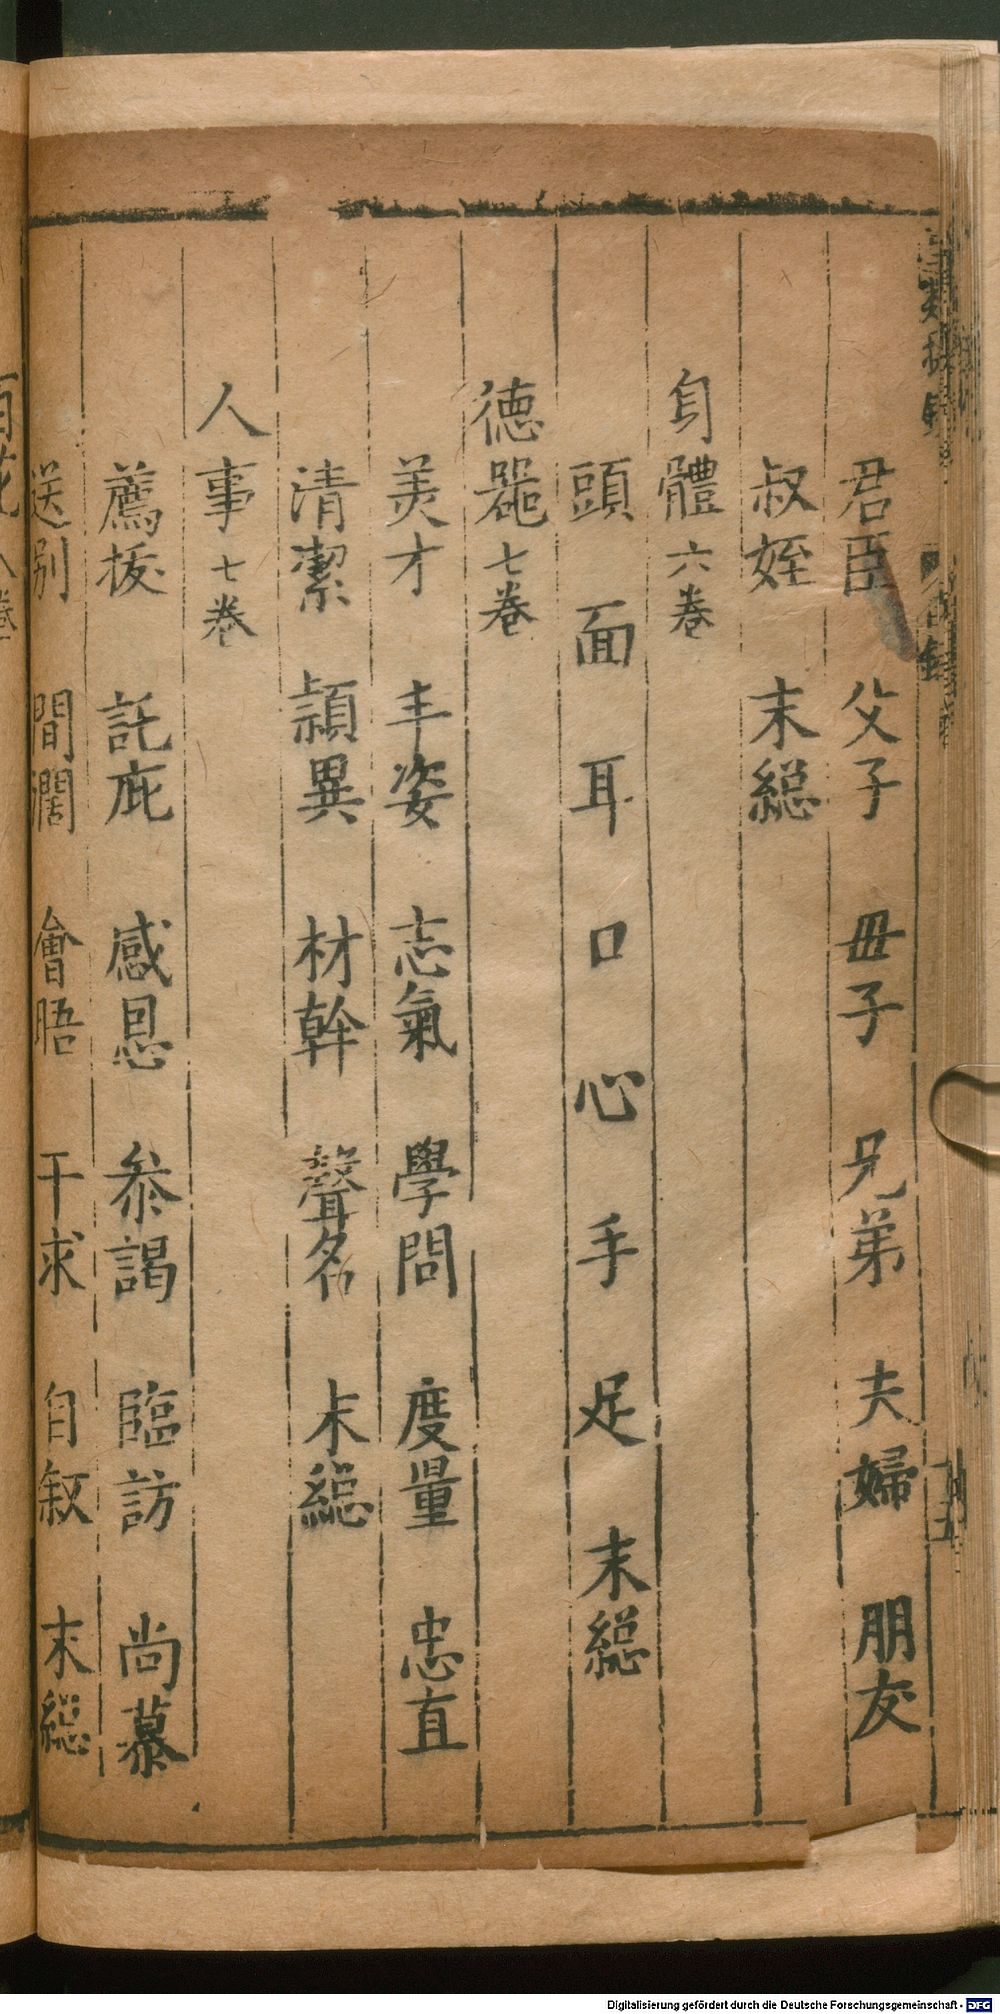 君臣 父子 毌子 兄弟 夫婦 朋友
叔姪 末総
身體 六卷
頭 面 耳 口 心 手 足 末総
徳噐 七卷
美才 丰姿 志氣 學問 度量 忠直
清潔 頴異 材幹 聲名 末総
人事 七卷
薦拔 託庇 感恩 叅謁 臨訪 尚慕
送别 間濶 會晤 干求 自叙 末総
Digitalisierung gefördert durch die Deutsche Forschungsgemeinschaft - DFG